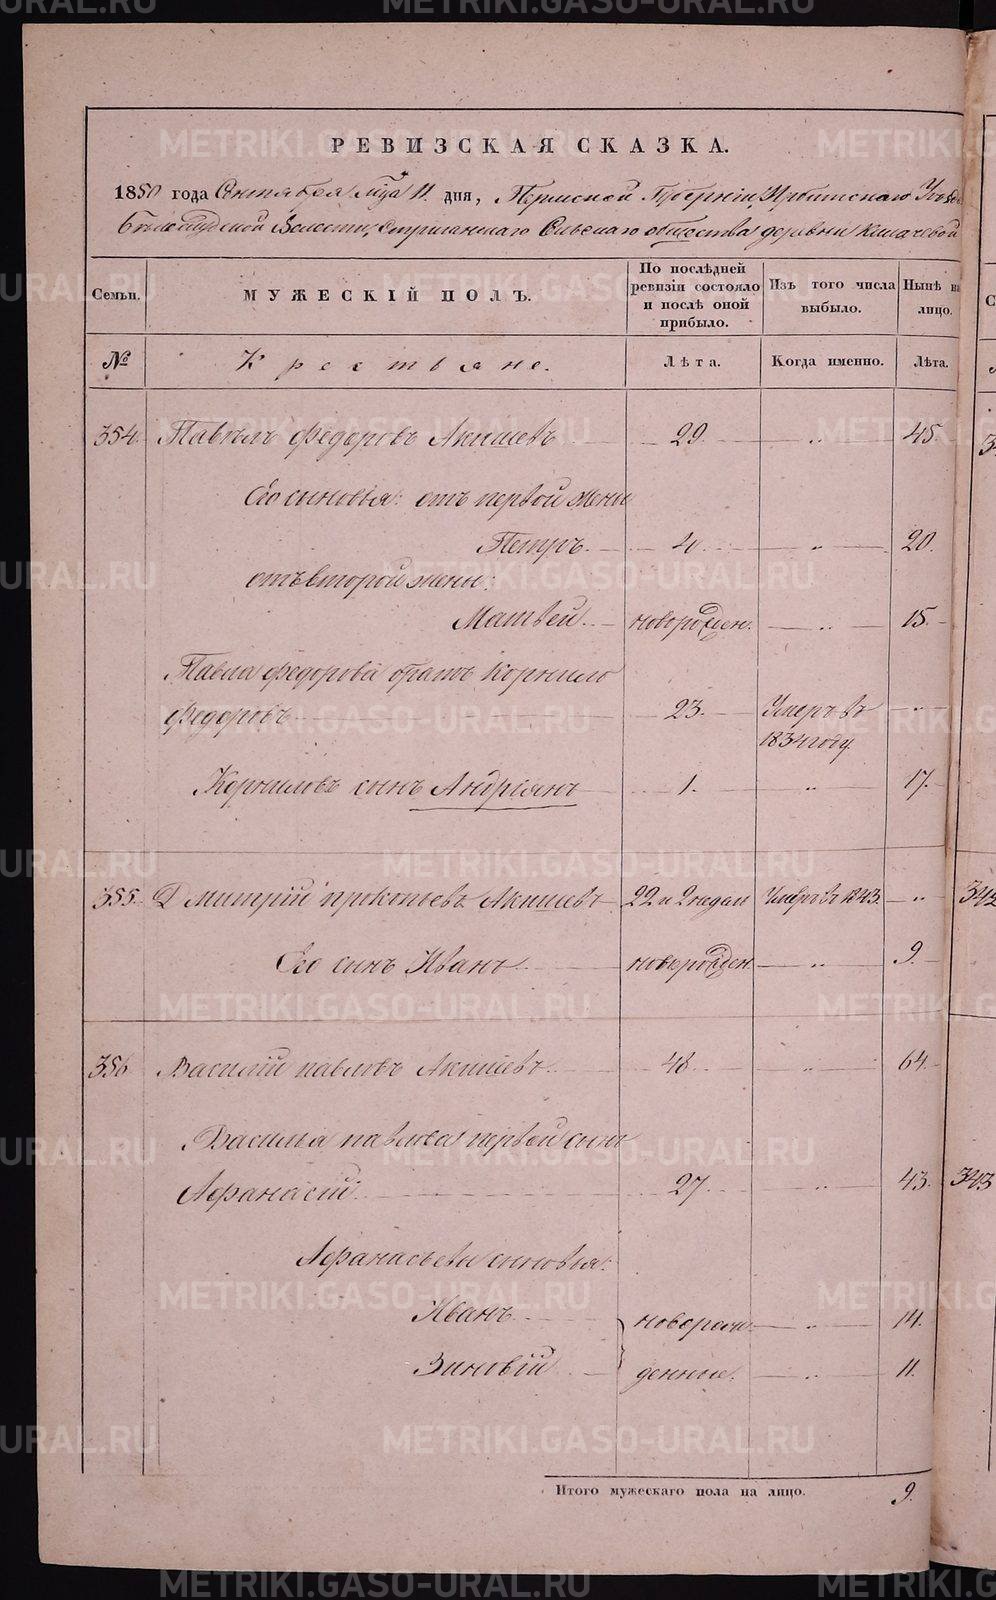 METRIKI.GASO-URAL.RU
РЕВИЗСКАЯ СКАЗКА.
1850 года Сентября мца 11 дня, Пермской Губерніи, Ирбитскаго Уѣзда
Бѣлослудской Волости, Стриганскаго Сельскаго общества деревни Кекачевой
Семьи. МУЖЕСКІЙ ПОЛЪ. По послѣдней ревизіи состояло и послѣ оной прибыло. Изъ того числа выбыло. Нынѣ на лицо.
№ Крестьяне. Лѣта. Когда именно. Лѣта.
354. Павелъ Федоровъ Акишевъ 29. „ 45.
Его сыновья: отъ первой жены
Петръ. 4. „ 20.
отъ второй жены:
Матвей новорожден. „ 15.
Павла Федорова братъ Корнило
Федоровъ 23. Умеръ въ „
1834 году.
Корниловъ сынъ Андреянъ 1. „ 17.
355. Дмитрій Прокопьевъ Акишевъ 22 и 2 недел Умеръ въ 1843. „
Его сынъ Иванъ новорожден. „ 9.
356 Василій Павловъ Акишевъ 48. „ 64.
Василья Павлова первой сынъ
Афанасій 27. „ 43.
Афанасьевы сыновья:
Иванъ новорож „ 14.
Зиновій денные. „ 11.
Итого мужескаго пола на лицо. 9.
342
343